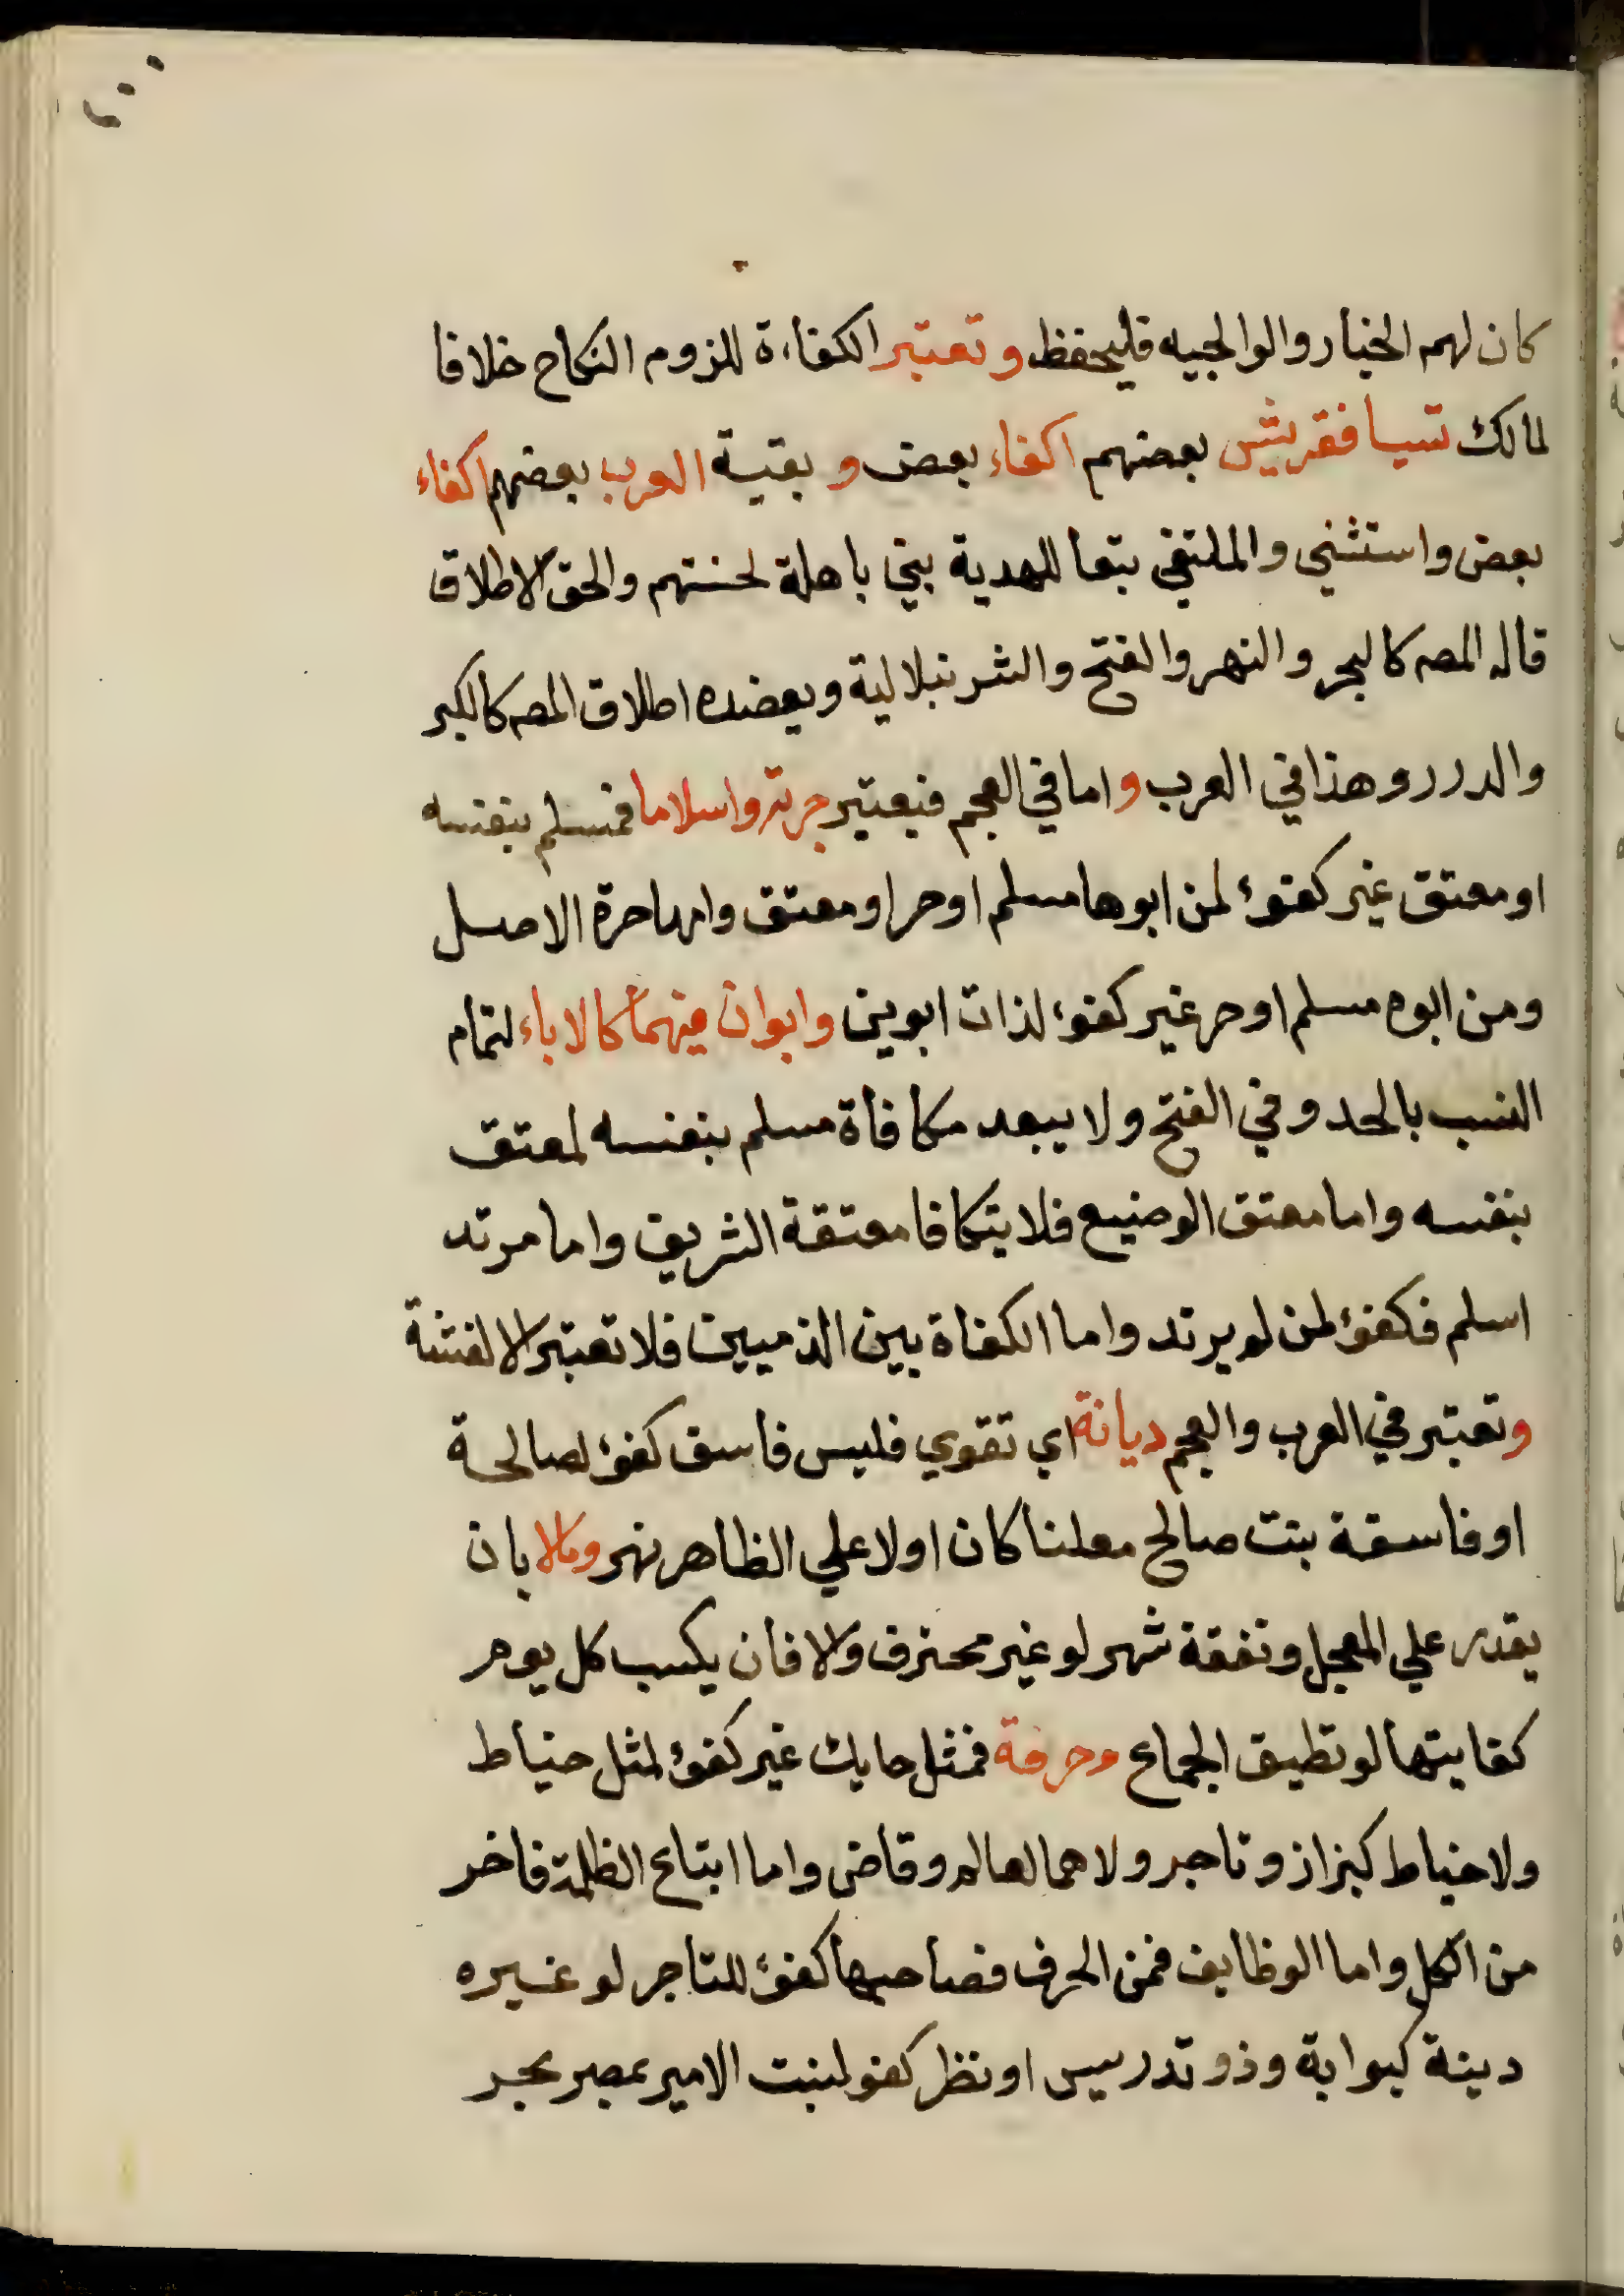 ٢٠٠
كان لهم الخيار والوالجيه فليحفظ وتعتبر الكفاءة للزوم النكاح خلافا
لمالك نسبا فقريش بعضهم اكفاء بعض و بقية العرب بعضهم اكفاء
بعض واستثني والملتقي بتعا للهدية بني باهلة لخستهم والحق الاطلاق
قاله المصه كالبحر والنهر والفتح والشرنبلالية ويعضده اطلاق المصه كالكبر
والدرر وهذا في العرب واما في العجم فيعتبر حرية واسلاما فمسلم بنفسه
او معتق غير كفوء لمن ابوها مسلم او حر او معتق وامها حرة الاصل
ومن ابوه مسلم او حر غير كفوء لذات ابوين وابوان فيهما كالاباء لتمام
النسب بالجد وفي الفتح ولا يبعد مكافاة مسلم بنفسه لمعتق
بنفسه واما معتق الوضيع فلا يتكافا معتقة الشريف واما مرتد
اسلم فكفؤ لمن لو يرتد واما الكفاة بين الذميين فلا تعتبر الا لفتنة
وتعتبر في العرب والعجم ديانة اي تقوي فليس فاسق كفؤ لصالحة
او فاسقة بنت صالح معلنا كان اولا علي الظاهر نهر ومالا بان
يقدر علي المعجل ونفقة شهر لو غير محترف والا فان يكسب كل يوم
كفايتها لو تطيق الجماع وحرفة فمثل حايك غير كفؤ لمثل خياط
ولا خياط كبزاز وتاجر ولا هما لعالم وقاض واما ابتاع الظلمة فاخر
من الكل واما الوظايف فمن الحرف فصاحبها كفؤ للتاجر لو غيره
دينة كبوابة وذو تدريس او نظر كفو لبنت الامير بمصر بحر